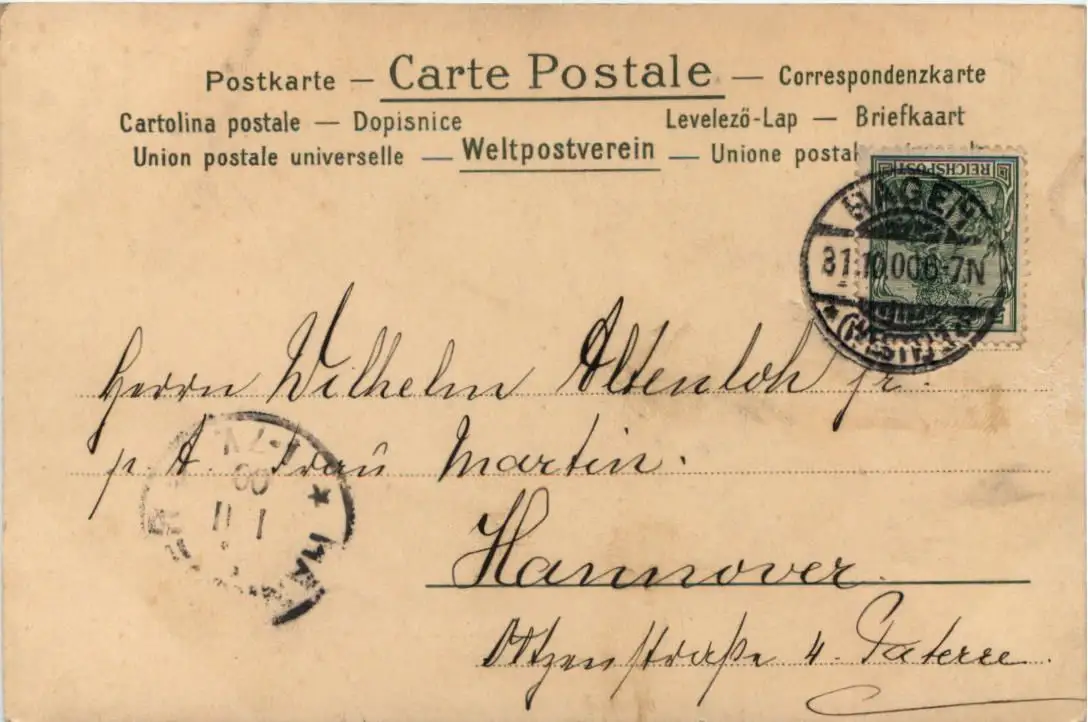 Postkarte — Carte Postale — Correspondenzkarte
Cartolina postale — Dopisnice Levelező-Lap — Briefkaart
Union postale universelle — Weltpostverein — Unione postal
REICHSPOST
HAGEN
31.10.00 6-7N
* (WESTF.)
Herrn Wilhelm Altenloh jr.
p. A. Frau Martin.
1-7V.
00
1 11
* HAN
Hannover.
Otzenstraße 4. Paterre.